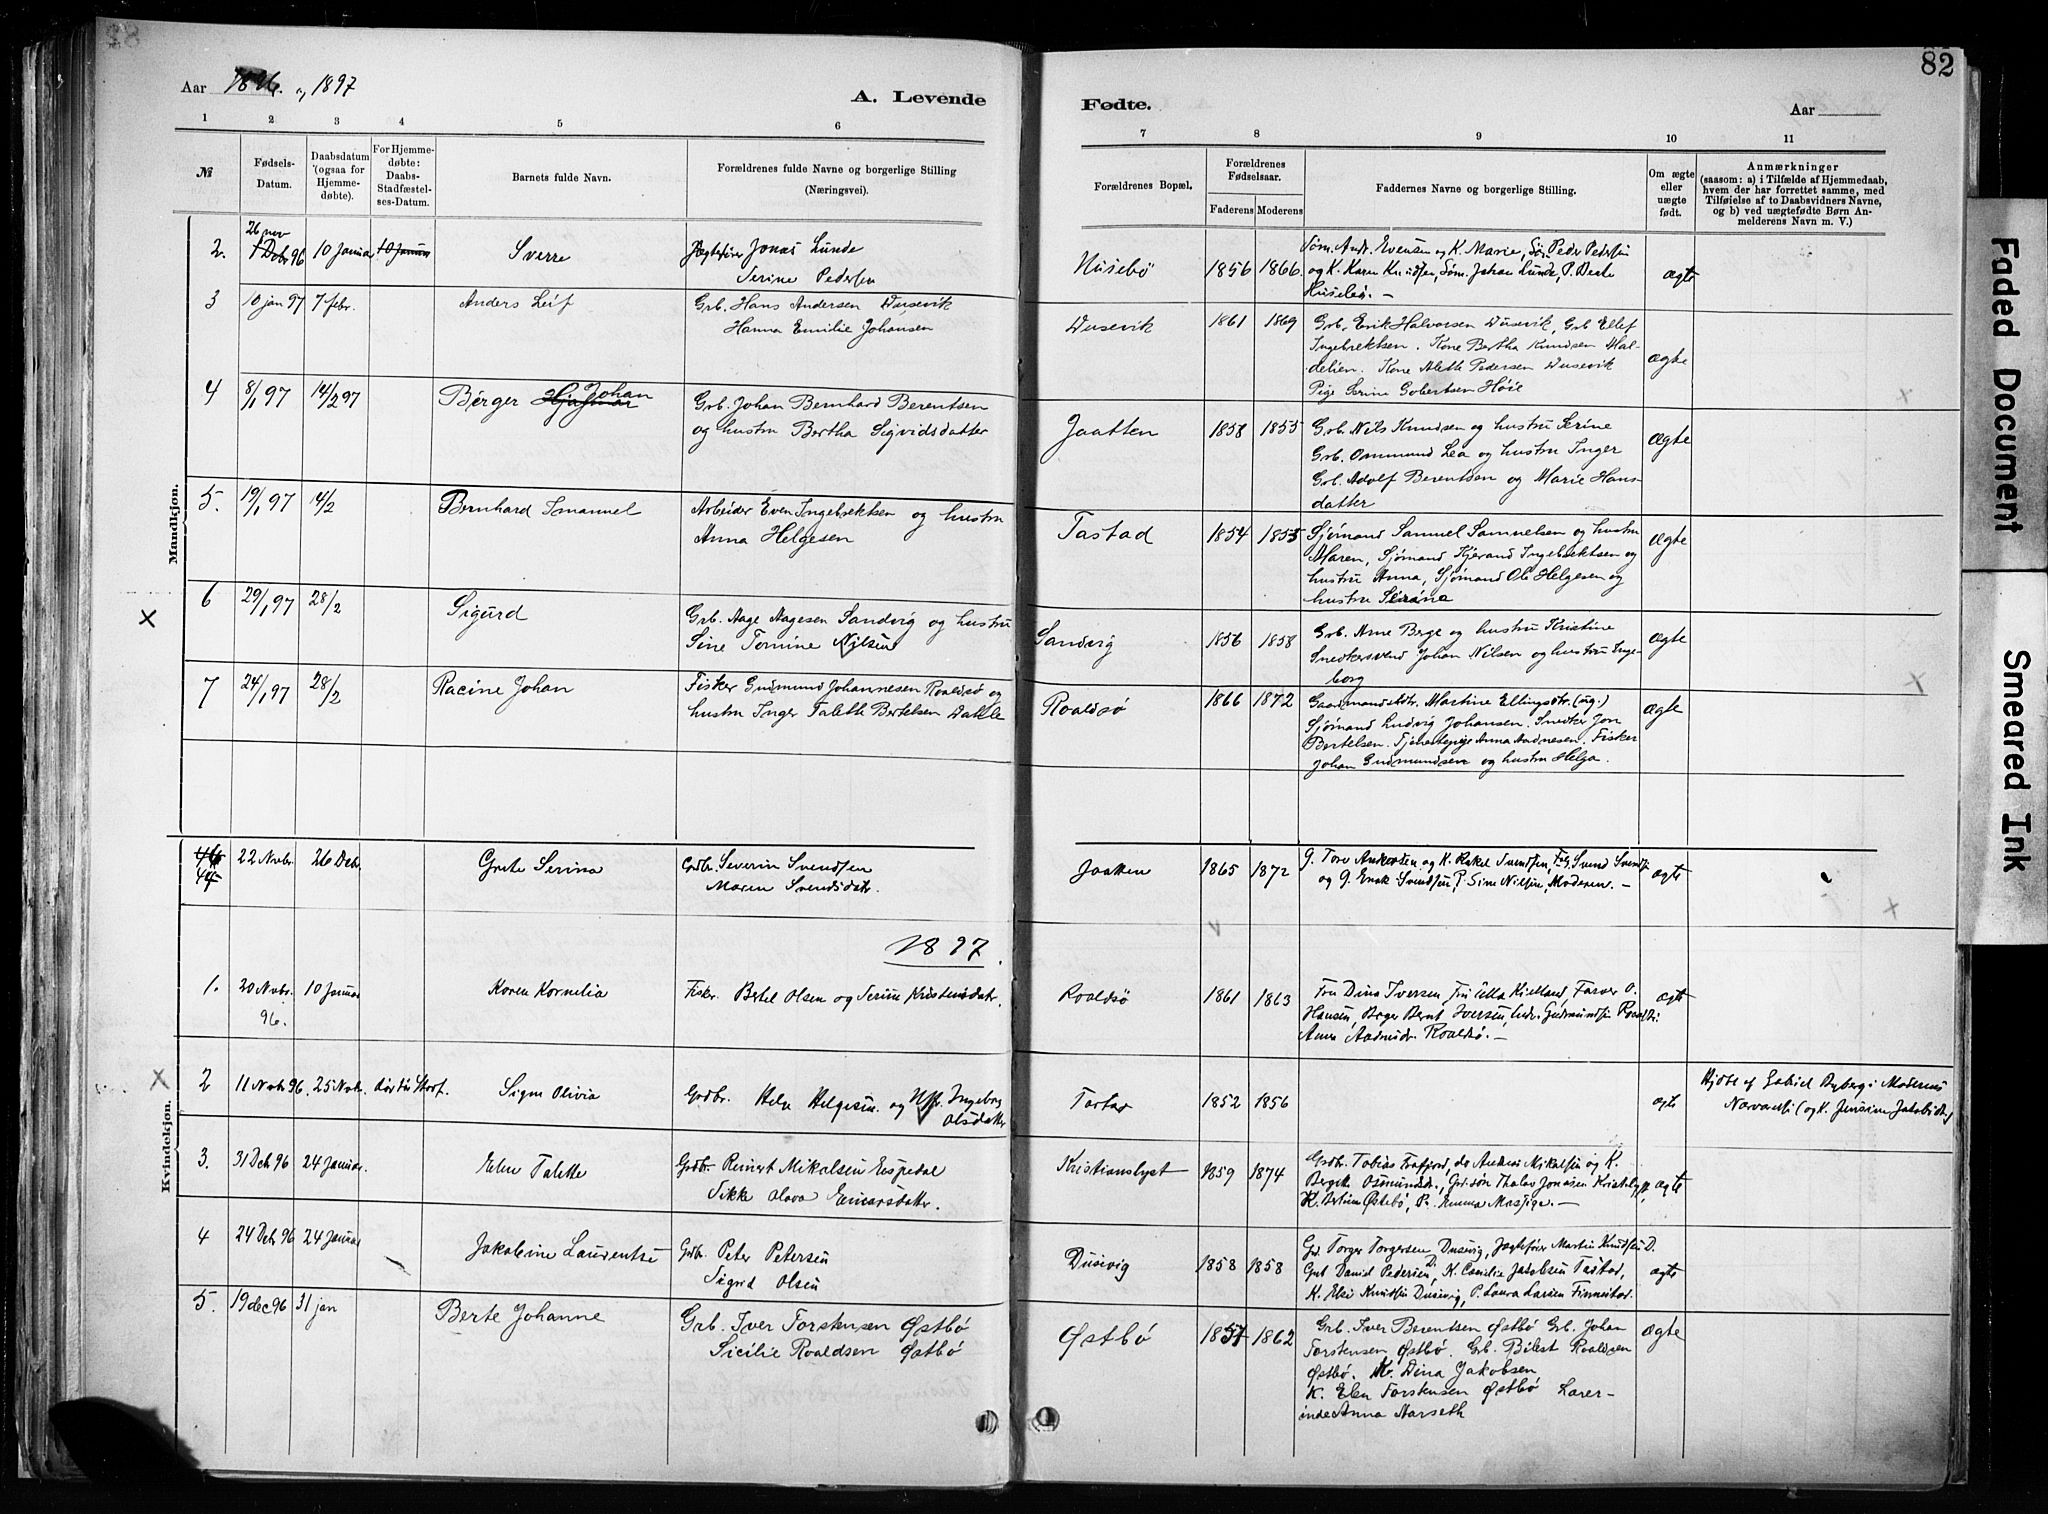 82
Aar 1896 og 1897
A. Levende
Fødte.
Aar
1 2 3 4 5 6 7 8 9 10 11
№
Fødsels-
Datum.
Daabsdatum
(ogsaa for
Hjemme-
døbte).
For Hjemme-
døbte:
Daabs-
Stadfæstel-
ses-Datum.
Barnets fulde Navn.
Forældrenes fulde Navne og borgerlige Stilling
(Næringsvei).
Forældrenes Bopæl.
Forældrenes
Fødselsaar.
Faderens Moderens
Faddernes Navne og borgerlige Stilling.
Om ægte
eller
uægte
født.
Anmærkninger
(saasom: a) i Tilfælde af Hjemmedaab,
hvem der har forrettet samme, med
Tilføielse af to Daabsvidners Navne,
og b) ved uægtefødte Børn An-
melderens Navn m. V.)
Mandkjøn.
2.
26 nov
1 Dcb 96
10 Januar
10 Januar
Sverre
Jægtefører Jonas Lunde
Serine Pedersen
Husebö
1856 1866
Søm. Andr. Evensen og K. Marie, Søn. Peder Pedersen
og K. Karen Knudsen, Søm. Johan Lunde, P. Berte
Husebö. —
ægte
3
10 jan 97
7 febr.
Anders Leif
Grb. Hans Andersen Dusevik
Hanna Emilie Johansen
Dusevik
1861 1869
Grb. Erik Halvorsen Dusevik, Grb Ellef
Ingebrektsen. Kone Bertha Knudsen Mal-
delien. Kone Alette Pedersen Dusevik
Pige Serine Gobertsen Höie
ægte
4
8/1 97
14/2 97
Börger Hjalmar Johan
Grb. Johan Bernhard Berentsen
og hustru Bertha Sigvidsdatter
Jaatten
1858 1855
Grb. Nils Knudsen og hustru Serine
Grb. Ommund Lea og hustru Inger
Grb. Adolf Berentsen og Marie Hans-
datter
ægte
5.
19/1 97
14/2
Bernhard Imanuel
Arbeider Even Ingebrektsen og hustru
Anna Helgesen
Tastad
1854 1855
Sjömand Samuel Samuelsen og hustru
Maren, Sjömand Kjerand Ingebrektsen og
hustru Anna, Sjömand Ole Helgesen og
hustru Serina
ægte
6
29/1 97
28/2
Sigurd
Grb. Aage Aagesen Sandvig og hustru
Sine Tomine Nilsen
Sandvig
1856 1858
Grb. Arne Berge og hustru Kristine
Snedkersvend Johan Nilsen og hustru Inge-
borg
ægte
7
24/1 97
28/2
Racine Johan
Fisker Gudmund Johannesen Roaldsø og
hustru Inger Talette Bertelsen Dattle
Roaldsø
1866 1872
Gaardmandsdtr. Martine Ellingsdtr. (ug.)
Sjömand Ludvig Johansen. Snedker Jon
Bertelsen. Tjenestepige Anna Aadnesen. Fisker
Johan Gudmundsen og hustru Helga.
ægte
Kvindekjøn.
46
44
22 Nvbr.
26 Dcbr.
Grete Serina
Grdbr. Severin Svendsen
Maren Svendsdtr.
Jaatten
1865 1872
G. Tore Andersen og K. Rakel Svendsen, Svend Svendsen
og G. Enok Svendsen, P. Sine Nilsen, Moderen. —
ægte
1897.
1.
20 Nvbr.
96.
10 Januar
Karen Kornelia
Fisker Bertel Olsen og Serine Kristensdatter.
Roaldsö
1861 1863
Fru Dina Iversen, Fru Ulla Kielland, Farver O.
Hansen, Bager Bernt Iversen, Gudmundsen Roaldsö
Anna Aadnesdtr. Roaldsø. —
ægte
2
11 Nvbr 96.
25 Nvbr.
Signe Olivia
Grdbr. Helge Helgesen og Hst. Ingeborg
Olsdatter
Tastad
1852 1856
ægte
Hjdbt af Gabriel Byberg i Moderens
Nærværelse (og K. Jensine Jakobsdtr.)
3.
31 Dcb 96
24 Januar.
Elen Talette
Grdbr. Reinert Mikalsen Espedal
Sikke Olava Einarsdatter.
Kristianslyst
1859 1874
Grdbr. Tobias Frafjord, do Andreas Mikalsen og K.
Bergitte Osmundsdtr., Grd.søn Thalav Jonassen Kristilyst,
K. Bertine Østebö, P. Emma Massige. —
ægte
4
24 Dcb 96
24 Januar
Jakobine Laurentse
Grdbr. Peter Petersen
Sigrid Olsen
Dusevig
1858 1858
Gr. Torger Torgersen Dusevig, Jægtefører Martin Knudsen D.
Gut Daniel Pedersen D., K. Cecilie Jakobsen Tastad,
K. Elei Knudsen Dusevig, P. Laura Larsen Finnestad.
ægte
5.
19 dec 96
31 jan
Berte Johanne
Grb. Iver Torstensen Østbö
Sicilie Roaldsen Østbö
Østbö
1857 1862
Grb. Iver Berentsen Østbö Grb. Johan
Torstensen Østbö. Grb. Bilest Roaldsen
Østbö. K. Dina Jakobsen
K. Elen Torstensen Østbö Lærer-
inde Anna Aarseth
ægte
Faded Document
Smeared Ink